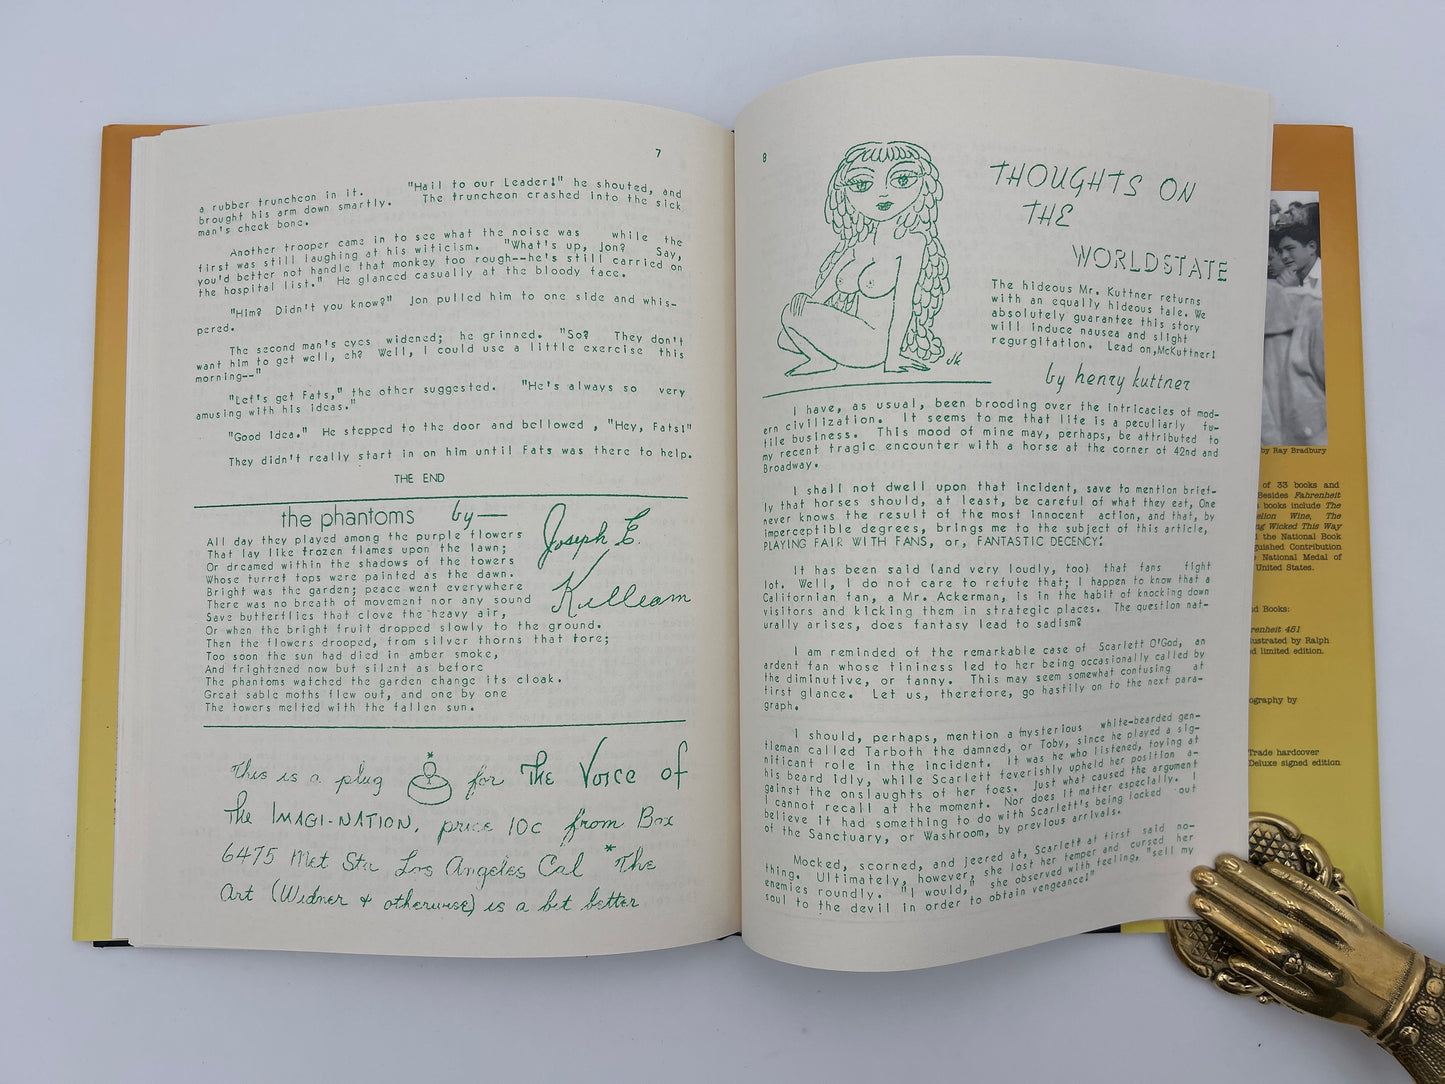 7
a rubber truncheon in it. "Hail to our Leader!" he shouted, and
brought his arm down smartly. The truncheon crashed into the sick
man's cheek bone.
Another trooper came in to see what the noise was while the
first was still laughing at his witicism. "What's up, Jon? Say,
you'd better not handle that monkey too rough--he's still carried on
the hospital list." He glanced casually at the bloody face.
"Him? Didn't you know?" Jon pulled him to one side and whis-
pered.
The second man's eyes widened; he grinned. "So? They don't
want him to get well, eh? Well, I could use a little exercise this
morning--"
"Let's get Fats," the other suggested. "He's always so very
amusing with his ideas."
"Good idea." He stepped to the door and bellowed , "Hey, Fats!"
They didn't really start in on him until Fats was there to help.
THE END
the phantoms by—
Joseph E.
Killeam
All day they played among the purple flowers
That lay like frozen flames upon the lawn;
Or dreamed within the shadows of the towers
Whose turret tops were painted as the dawn.
Bright was the garden; peace went everywhere
There was no breath of movement nor any sound
Save butterflies that clove the heavy air,
Or when the bright fruit dropped slowly to the ground.
Then the flowers drooped, from silver thorns that tore;
Too soon the sun had died in amber smoke,
And frightened now but silent as before
The phantoms watched the garden change its cloak.
Great sable moths flew out, and one by one
The towers melted with the fallen sun.
This is a plug * for The Voice of
the IMAGI-NATION, price 10c from Box
6475 Met Sta Los Angeles Cal *The
Art (Widner + otherwise) is a bit better
8
THOUGHTS ON
THE
WORLDSTATE
The hideous Mr. Kuttner returns
with an equally hideous tale. We
absolutely guarantee this story
will induce nausea and slight
regurgitation. Lead on,McKuttner!
by henry kuttner
I have, as usual, been brooding over the intricacies of mod-
ern civilization. It seems to me that life is a peculiarly fu-
tile business. This mood of mine may, perhaps, be attributed to
my recent tragic encounter with a horse at the corner of 42nd and
Broadway.
I shall not dwell upon that incident, save to mention brief-
ly that horses should, at least, be careful of what they eat, One
never knows the result of the most innocent action, and that, by
imperceptible degrees, brings me to the subject of this article,
PLAYING FAIR WITH FANS, or, FANTASTIC DECENCY:
It has been said (and very loudly, too) that fans fight
lot. Well, I do not care to refute that; I happen to know that a
Californian fan, a Mr. Ackerman, is in the habit of knocking down
visitors and kicking them in strategic places. The question nat-
urally arises, does fantasy lead to sadism?
I am reminded of the remarkable case of Scarlett O'God, an
ardent fan whose tininess led to her being occasionally called by
the diminutive, or fanny. This may seem somewhat confusing at
first glance. Let us, therefore, go hastily on to the next para-
graph.
I should, perhaps, mention a mysterious white-bearded gen-
tleman called Tarboth the damned, or Toby, since he played a sig-
nificant role in the incident. It was he who listened, toying at
his beard idly, while Scarlett feverishly upheld her position a-
gainst the onslaughts of her foes. Just what caused the argument
I cannot recall at the moment. Nor does it matter especially. I
believe it had something to do with Scarlett's being locked out
of the Sanctuary, or Washroom, by previous arrivals.
Mocked, scorned, and jeered at, Scarlett at first said no-
thing. Ultimately, however, she lost her temper and cursed her
enemies roundly. "I would," she observed with feeling, "sell my
soul to the devil in order to obtain vengeance!"
by Ray Bradbury
of 33 books and
Besides Fahrenheit
books include The
Wine, The
Wicked This Way
the National Book
Contribution
National Medal of
United States.
Books:
451
illustrated by Ralph
limited edition.
by
Trade hardcover
Deluxe signed edition